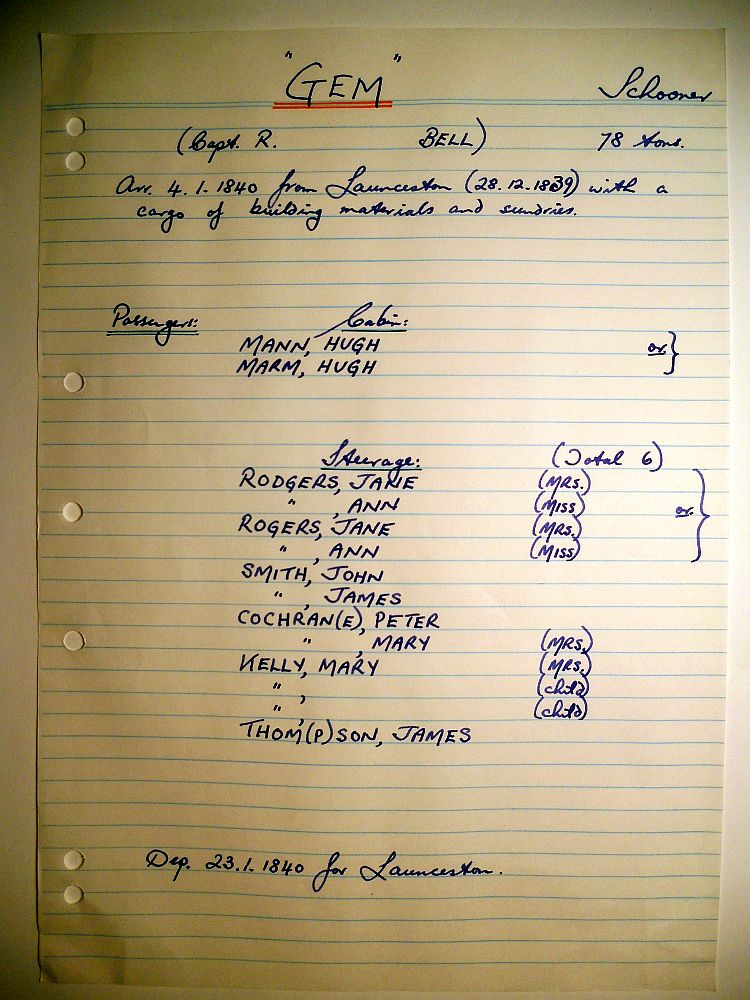 "GEM" Schooner
(Capt. R. BELL) 78 tons.
Arr. 4.1.1840 from Launceston (28.12.1839) with a
cargo of building materials and sundries.
Passengers: Cabin:
MANN, HUGH or }
MARM, HUGH
Steerage: (Total 6)
RODGERS, JANE (MRS.)
" , ANN (MISS)
ROGERS, JANE (MRS.) or }
" , ANN (MISS)
SMITH, JOHN
" , JAMES
COCHRAN(E), PETER
" , MARY (MRS.)
KELLY, MARY (MRS.)
" , (child)
" , (child)
THOM(P)SON, JAMES
Dep. 23.1.1840 for Launceston.